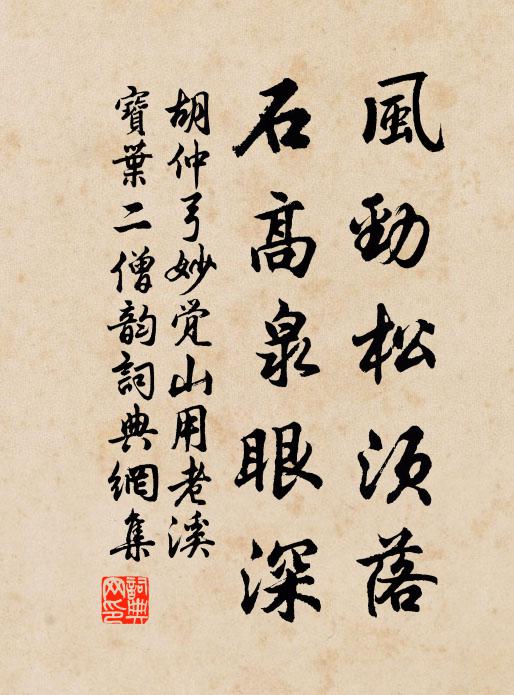 風勁松須落
石高泉眼深
胡仲弓妙觉山用老溪
寶葉二僧韵詞典網集
詞典網印